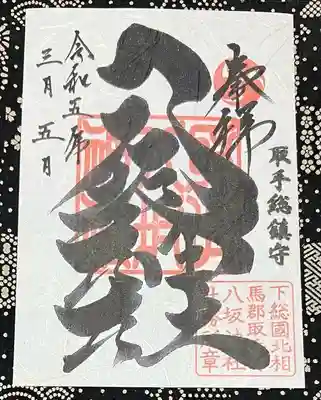 奉拝
取手総鎮守
八坂神社
令和五年
三月五日
下総國北相
馬郡取
八坂神社
章